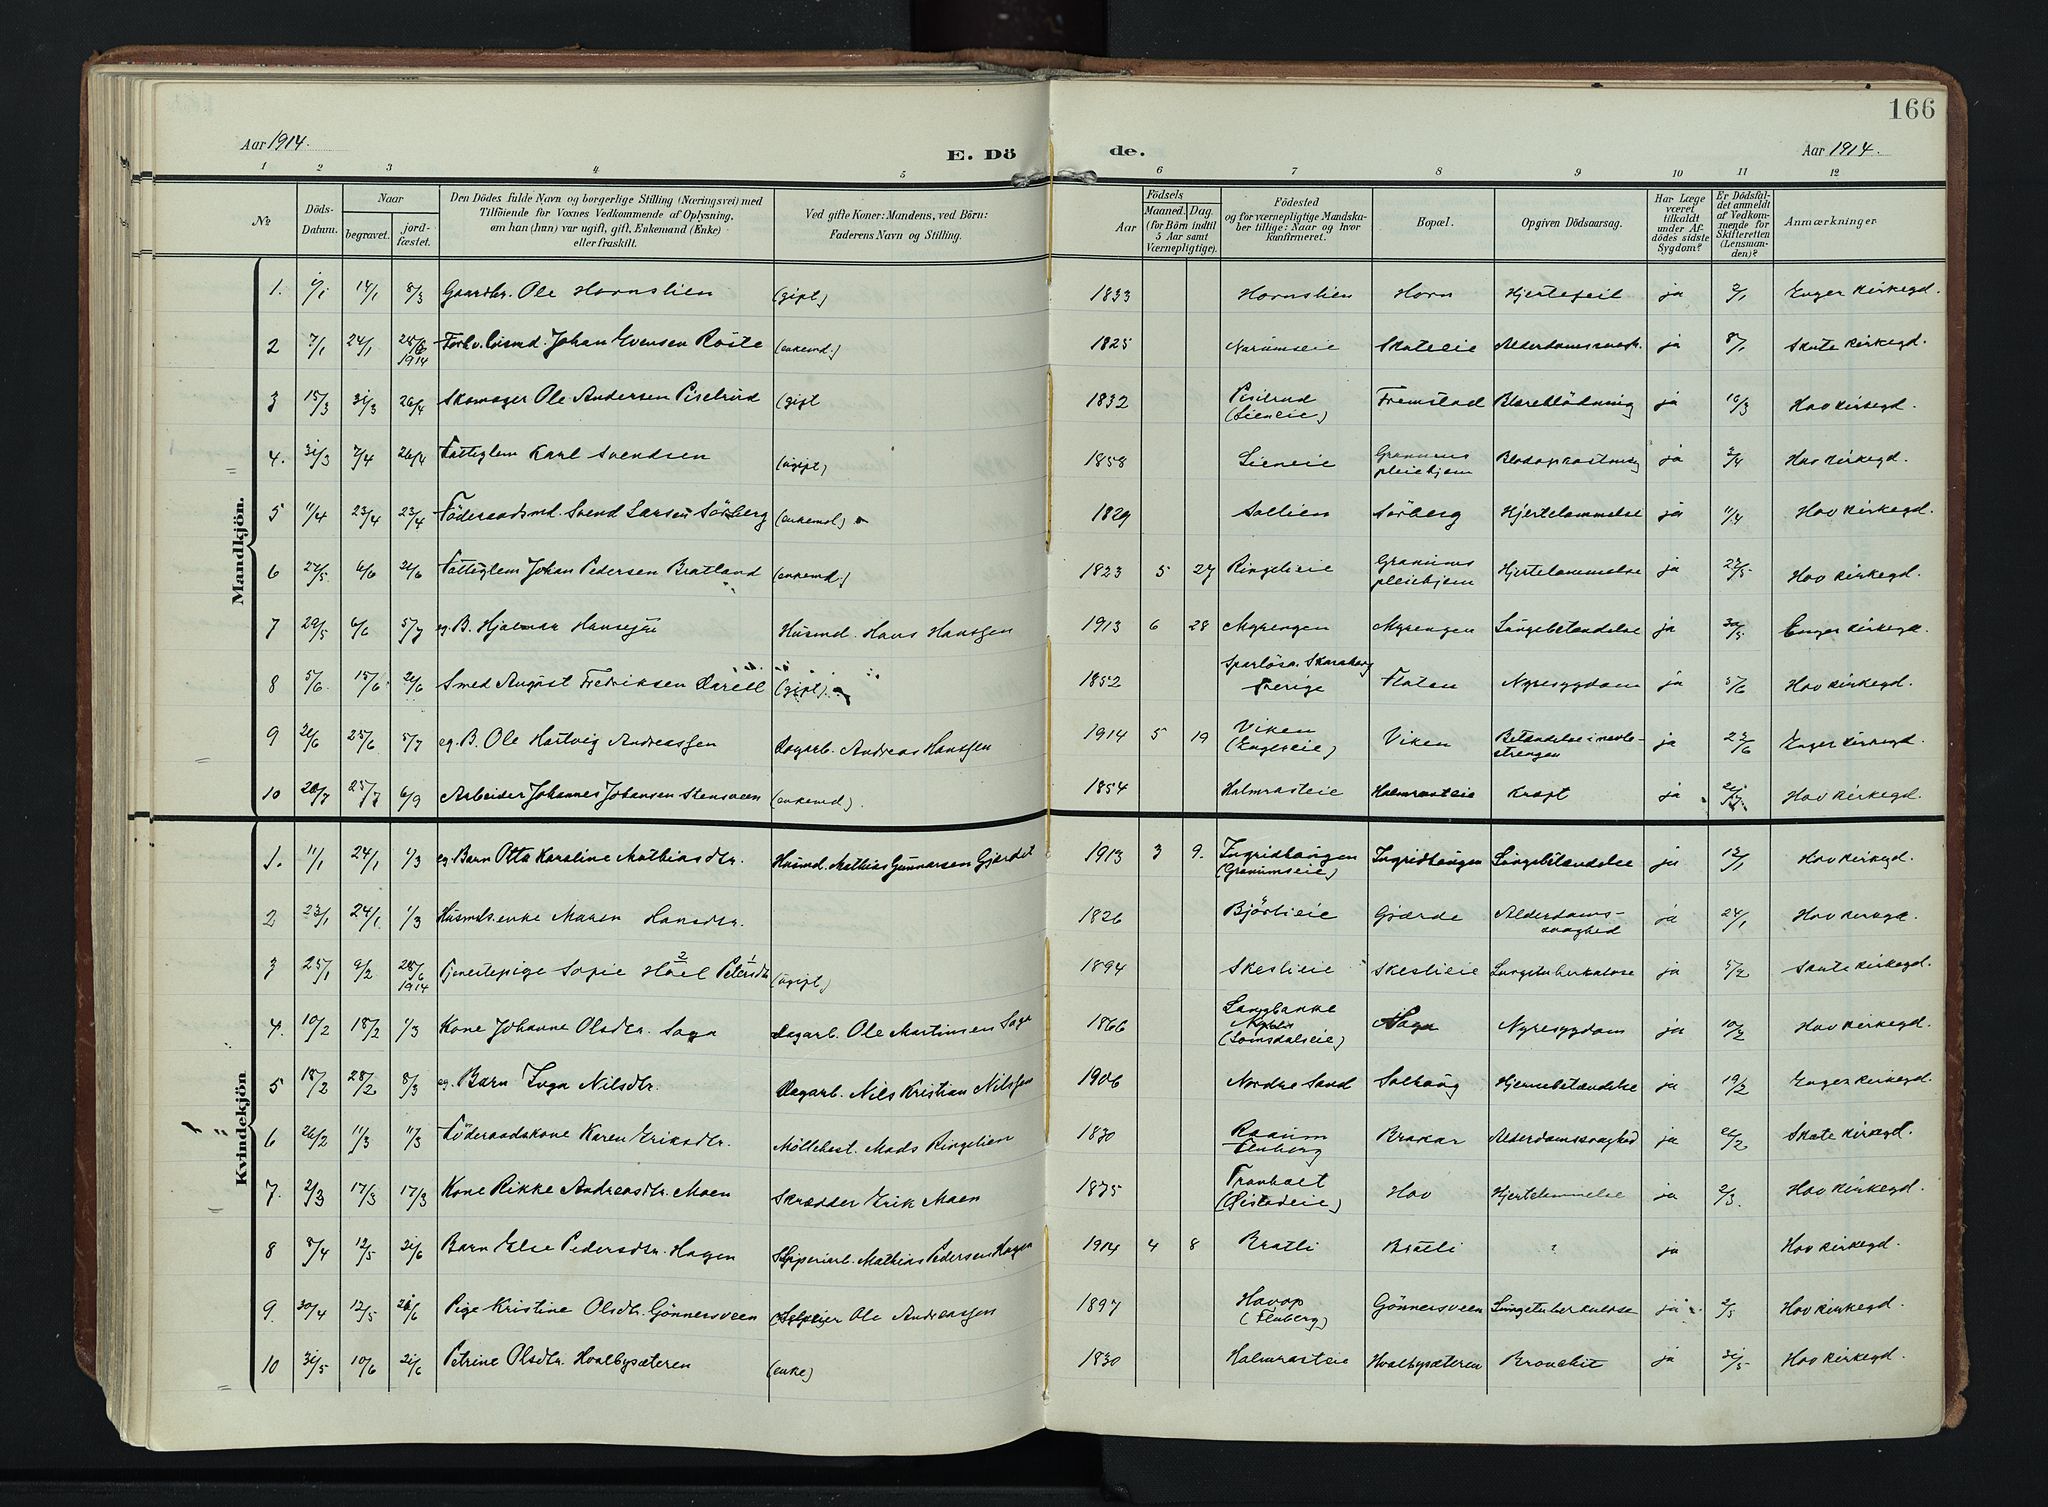 166
Aar 1914.
E. Döde.
Aar 1914.
1 2 3 4 5 6 7 8 9 10 11 12
No
Döds-Datum.
Naar
begravet.
jord-fæstet.
Den Dödes fulde Navn og borgerlige Stilling (Næringsvei) med
Tilföiende for Voxnes Vedkommende af Oplysning,
om han (hun) var ugift, gift, Enkemand (Enke)
eller fraskilt.
Ved gifte Koner: Mandens, ved Börn:
Faderens Navn og Stilling.
Födsels
Aar
Maaned. Dag.
(for Börn indtil
5 Aar samt
Værnepligtige).
Födested
og for værnepligtige Mandska-
ber tillige: Naar og hvor
konfirmeret.
Bopæl.
Opgiven Dödsaarsag.
Har Læge
været
tilkaldt
under Af-
dödes sidste
Sygdom?
Er Dödsfal-
det anmeldt
af Vedkom-
mende for
Skifteretten
(Lensman-
den)?
Anmærkninger
Mandkjön.
1. 14/1 8/3 Gaardbr. Ole Hornslien (gift) 1833 Hornslien Horn Hjertefeil ja 9/1 Enger kirkegd.
2 7/1 24/1 28/6 1914 Forhv. Husmd. Johan Evensen Röste (enkemd.) 1825 Narumseie Skuteeie Alderdomssvagh. ja 8/1 Skute kirkegd.
3 15/3 31/3 26/4 Skomager Ole Andersen Piselrud (gift 1832 Piselrud (Lieneie) Fremstad Blæreblödning ja 16/3 Hov kirkegd.
4. 31/3 7/4 26/4 Fattiglem Karl Svendsen (ugift) 1858 Lieneie Granums pleiehjem Blodopkastning ja 2/4 Hov kirkegd.
5 11/4 23/4 23/4 Föderaadsmd. Svend Larsen Sörberg (enkemd) 1829 Sollien Sörberg Hjertelammelse ja 11/4 Hov kirkegd.
6 27/5 6/6 21/6 Fattiglem Johan Pedersen Bratland (enkemd.) 1823 5 27 Ringelieie Granums pleiehjem Hjertelammelse ja 27/5 Hov kirkegd.
7 29/5 6/6 5/7 eg. B. Hjalmar Hansen Husmd. Hans Hanssen 1913 6 28 Myrengen Myrengen Lungebetændelse ja 30/5 Enger kirkegd.
8 5/6 15/6 21/6 Smed August Fredriksen Karell (gift) 1852 Sparlösa. Skaraborg Sverige Floten Nyresygdom ja 5/6 Hov kirkegd.
9 21/6 25/6 5/7 eg. B. Ole Hartvig Andreassen Dagarb. Andreas Hanssen 1914 5 19 Viken (Engeseie) Viken Betændelse i navle-strengen ja 23/6 Enger kirkegd.
10 20/7 25/7 6/9 Arbeider Johannes Johansen Stensveen (enkemd). 1854 Halmrasteie Halmrasteie Kræft ja 21/7 Hov kirkegd.
Kvindekjön
1. 11/1 24/1 1/3 eg. Barn Otta Karoline Mathiasdtr. Husmd. Mathias Gunnarsen Gjærdet 1913 3 9. Ingridhaugen (Granumseie) Ingridhaugen Lungebetændelse ja 13/1 Hov kirkegd.
2 23/1 24/1 1/3 Husmds.enke Maren Hansdtr. 1826 Björlieie Gjærde Alderdoms-svaghed ja 24/1 Hov kirkegd.
3 25/1 9/2 28/6 1914 Tjenestepige Sofie Hoel Petersdtr (ugift) 1894 Skeslieie Skeslieie Lungetuberkulose ja 5/2 Skute kirkegd.
4. 10/2 18/2 1/3 Kone Johanne Olsdtr. Saga Dagarb. Ole Martinsen Saga 1866 Langbakke (Lomsdalseie) Saga Nyresygdom ja 10/2 Hov kirkegd.
5 18/2 28/2 8/3 eg. Barn Inga Nilsdtr. Dagarb. Nils Kristian Nilssen 1906 Nordre Sand Solhaug Hjernebetændelse ja 19/2 Enger kirkegd.
6 26/2 11/3 11/3 Föderaadskone Karen Eriksdtr. Möllebest. Mads Ringelien 1830 Raaum Fluberg Brakar Alderdomssvaghed ja 26/2 Skute kirkegd.
7. 2/3 17/3 17/3 Kone Rikke Andreasdtr. Moen Skrædder Erik Moen 1875 Tranholt Hov Hjertelammelse ja 2/3. Hov kirkegd.
8 8/4 12/5 21/6 Barn Else Pedersdtr. Hagen Sliperiarb. Mathias Pedersen Hagen 1904 4 8 Bratli Bratli ? ja Hov kirkegd.
9. 30/4 12/5 21/6 Pige Kristine Olsdtr. Gönnersveen Ole Andreassen 1897 (Fluberg) Gönnersveen Lungetuberkulose ja 2/5 Hov kirkegd.
10 31/5 10/6 21/6 Petrine Olsdtr. Hvalbysæteren (enke) 1830 Halmrasteie Hvalbysæteren Bronchit ja 31/5 Hov kirkegd.